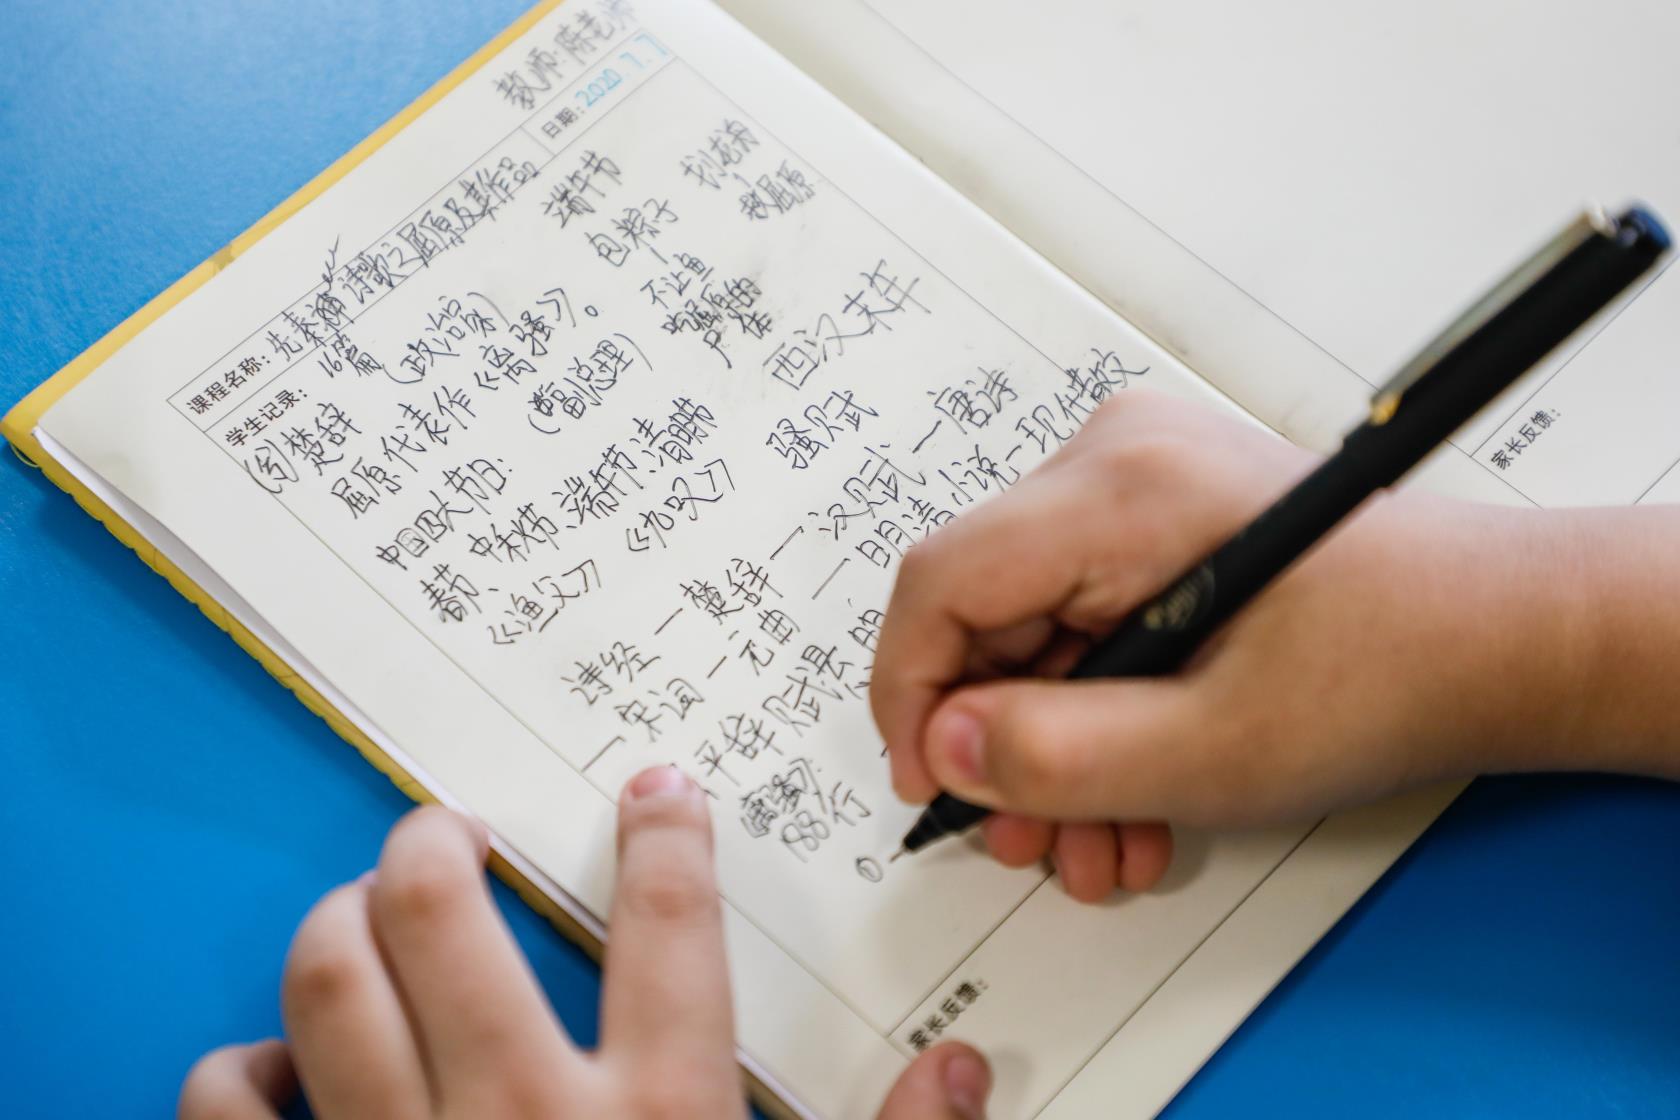 教师:陈老师
日期:2020.7.7
课程名称:先秦 诗歌之屈原及其作品
学生记录:
16篇
楚辞 (政治家)
屈原代表作《离骚》。
中国四大节日: (副总理)
春节、中秋节、端午节、清明
《渔父》 《九叹》
端午节
包粽子 划龙舟
不让鱼 救屈原
吃屈原的
尸体
西汉末年
骚赋
诗经一楚辞一汉赋一唐诗
一宋词一元曲一明清小说一现代散文
平辞赋县
《离骚》
188行
①
家长反馈:
家长反馈: